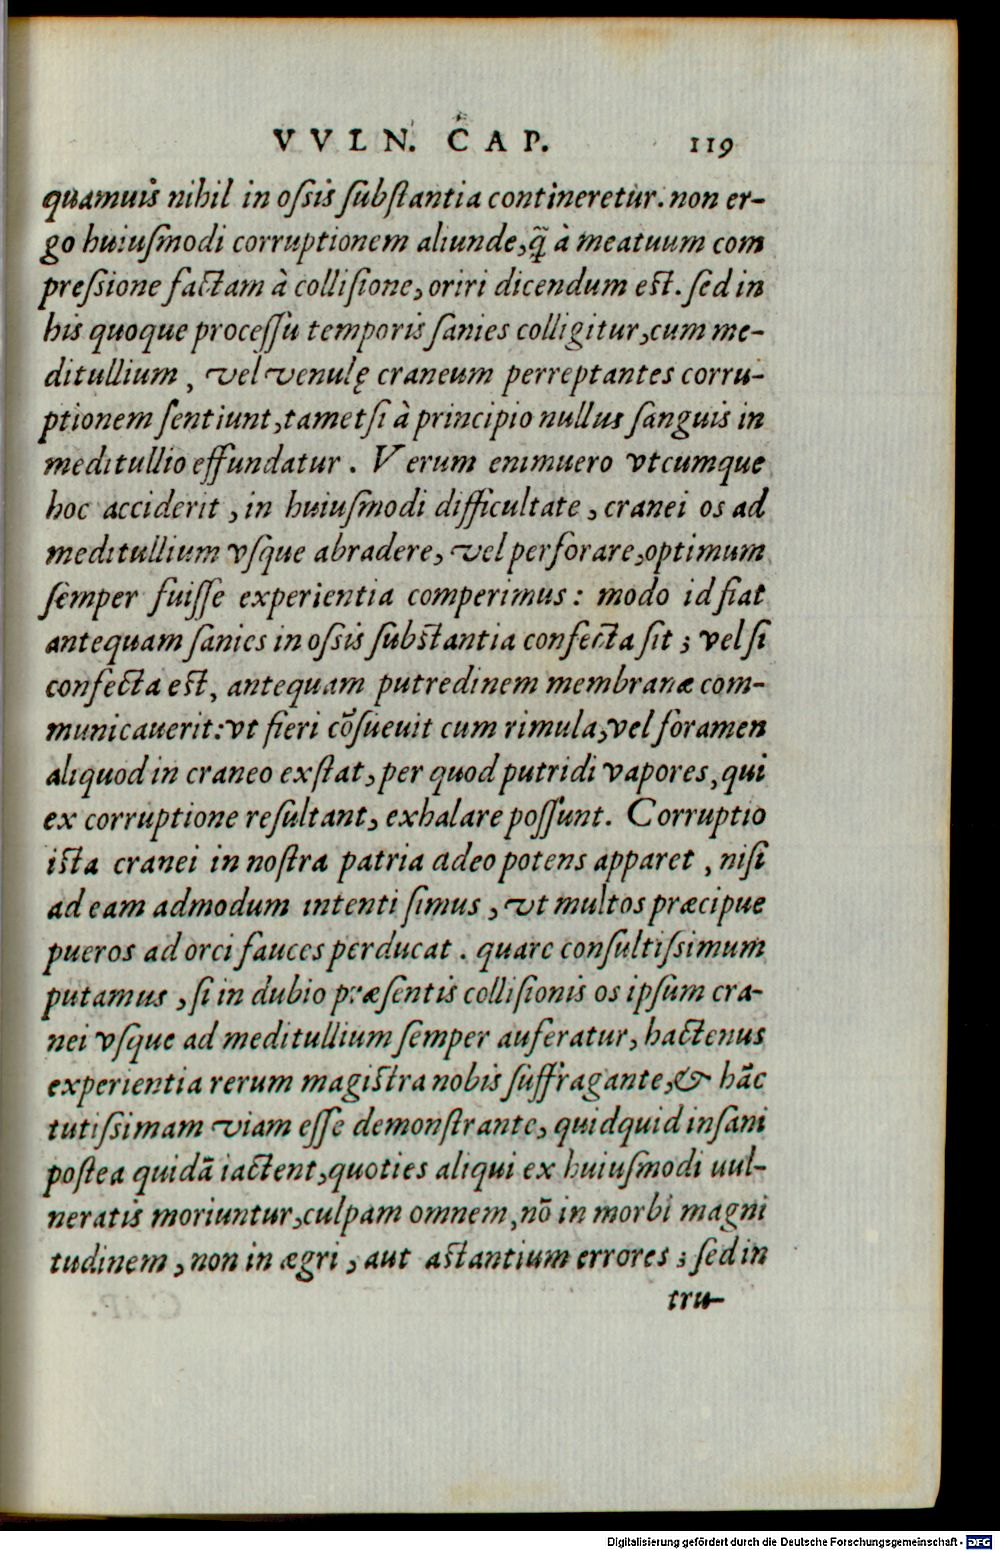 VVLN. CAP. 119
quamuis nihil in oſsis ſubſtantia contineretur. non er-
go huiuſmodi corruptionem aliunde, q̃ à meatuum com
preſsione factam à colliſione, oriri dicendum est. ſed in
his quoque proceſſu temporis ſanies colligitur, cum me-
ditullium, vel venulę craneum perreptantes corru-
ptionem ſentiunt, tametſi à principio nullus ſanguis in
meditullio effundatur. Verum enimuero vtcumque
hoc acciderit, in huiuſmodi difficultate, cranei os ad
meditullium vſque abradere, vel perforare, optimum
ſemper fuiſſe experientia comperimus: modo id fiat
antequam ſanies in oſsis ſubstantia confecta ſit; vel ſi
confecta est, antequam putredinem membranæ com-
municauerit: vt fieri cõſueuit cum rimula, vel foramen
aliquod in craneo exſtat, per quod putridi vapores, qui
ex corruptione reſultant, exhalare poſſunt. Corruptio
ista cranei in noſtra patria adeo potens apparet, niſi
ad eam admodum intenti ſimus, vt multos præcipue
pueros ad orci fauces perducat. quare conſultiſsimum
putamus, ſi in dubio præſentis colliſionis os ipſum cra-
nei vſque ad meditullium ſemper auferatur, hactenus
experientia rerum magistra nobis ſuffragante, & hãc
tutiſsimam viam eſſe demonſtrante, quidquid inſani
poſtea quidã iactent, quoties aliqui ex huiuſmodi uul-
neratis moriuntur, culpam omnem, nõ in morbi magni
tudinem, non in ægri, aut astantium errores; ſed in
tru-
Digitalisierung gefördert durch die Deutsche Forschungsgemeinschaft - DFG